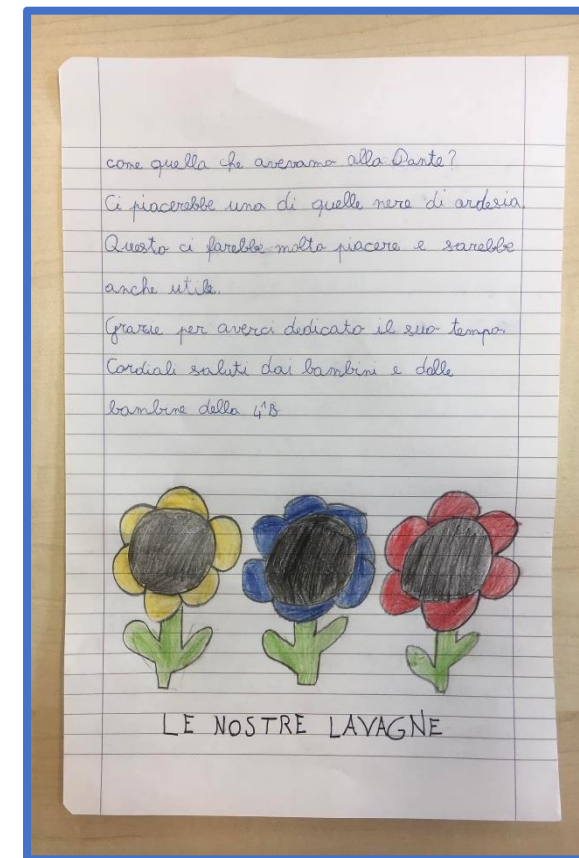 come quella che avevamo alla Dante?
Ci piacerebbe una di quelle nere di ardesia.
Questo ci farebbe molto piacere e sarebbe
anche utile.
Grazie per averci dedicato il suo tempo.
Cordiali saluti dai bambini e dalle
bambine della 4^B
LE NOSTRE LAVAGNE